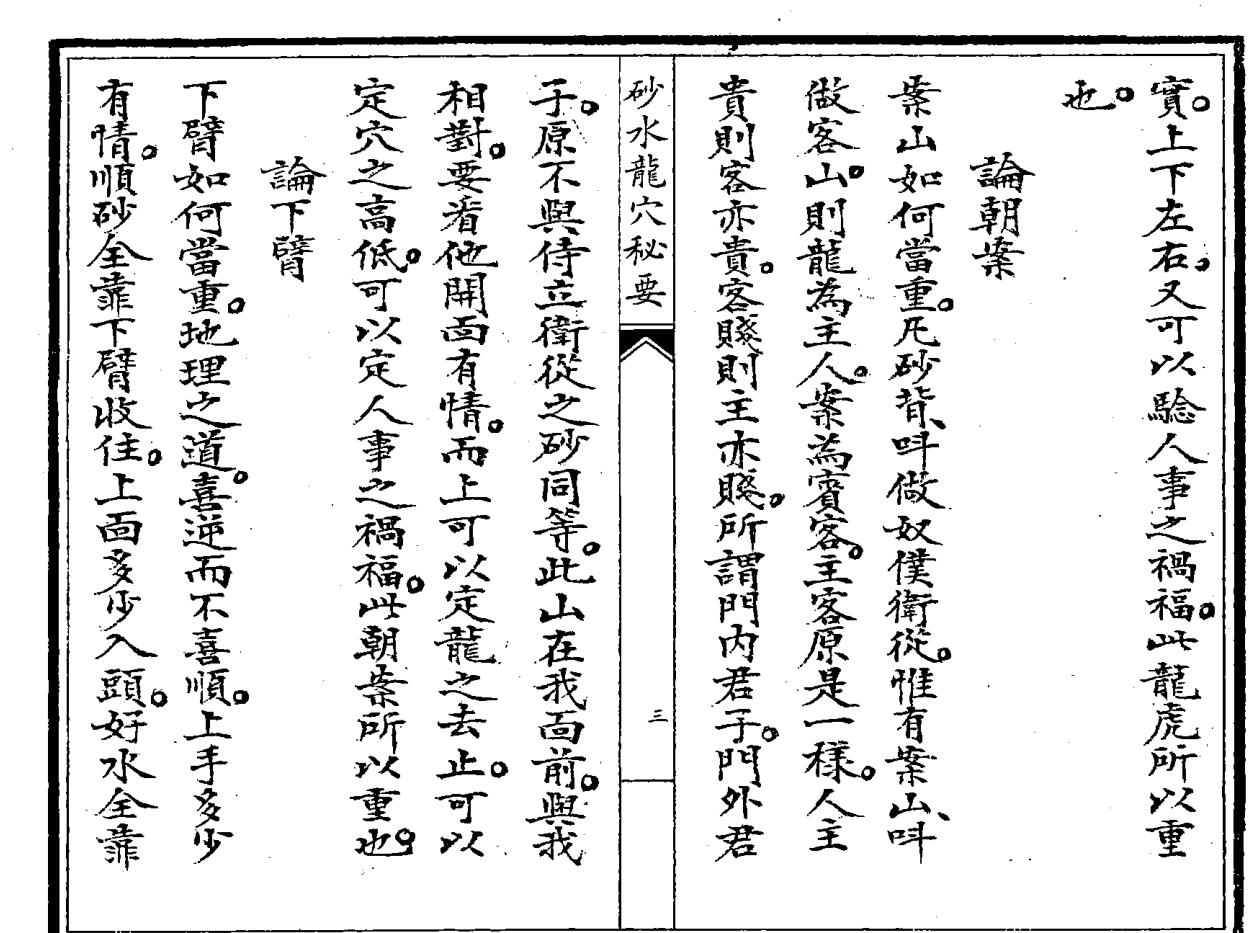 實。上下左右。又可以驗人事之禍福。此龍虎所以重
也。
論朝案
案山如何當重。凡砂背、呌做奴僕衛從。惟有案山、呌
做客山。則龍為主人。案為賓客。主客原是一樣。人主
貴則客亦貴。客賤則主亦賤。所謂門內君子。門外君
砂水龍穴秘要
三
子。原不與侍立衛從之砂同等。此山在我面前。與我
相對。要看他開面有情。而上可以定龍之去止。可以
定穴之高低。可以定人事之禍福。此朝案所以重也。
論下臂
下臂如何當重。地理之道。喜逆而不喜順。上手多少
有情。順砂全靠下臂收住。上面多少入頭。好水全靠